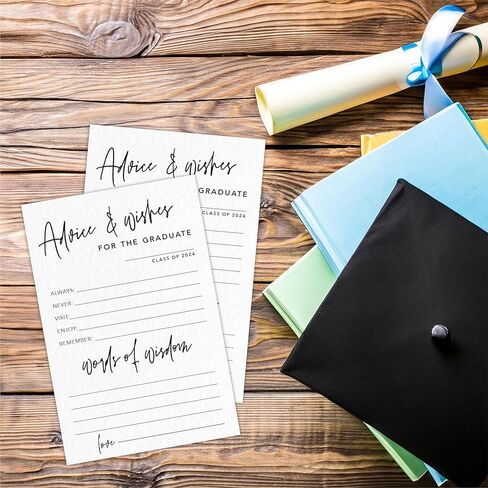 Advice & Wishes
GRADUATE
CLASS OF 2024
Advice & Wishes
FOR THE GRADUATE
CLASS OF 2024
ALWAYS:
NEVER:
VISIT:
ENJOY:
REMEMBER:
Words of Wisdom
love